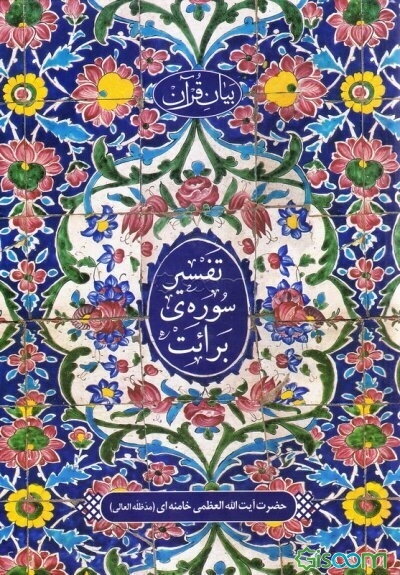 بیان قرآن
تفسیر
سوره‌ی
برائت
حضرت آیت الله العظمی خامنه ای (مدظله العالی)
Gisoom